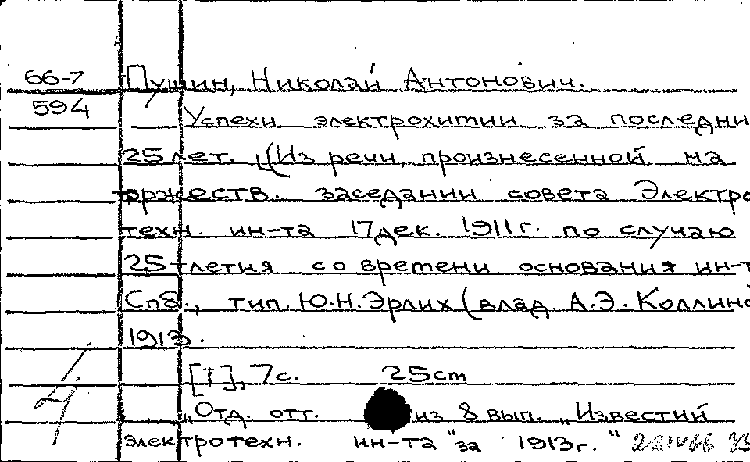 66-7
594
Пушин, Николай Антонович.
Успехи электрохитии за последни
25 лет. (Из речи, произнесенной на
торжеств. заседании совета Электро
техн. ин-та 17 дек. 1911 г. по случаю
25-тлетия со времени основания ин-т
Спб., тип. Ю.Н. Эрлих (влад А.Э. Коллинс
1913.
[1], 7 с. 25 cm
"Отд. отт. из 8 вып. "Известий
электротехн. ин-та "за 1913 г."
4